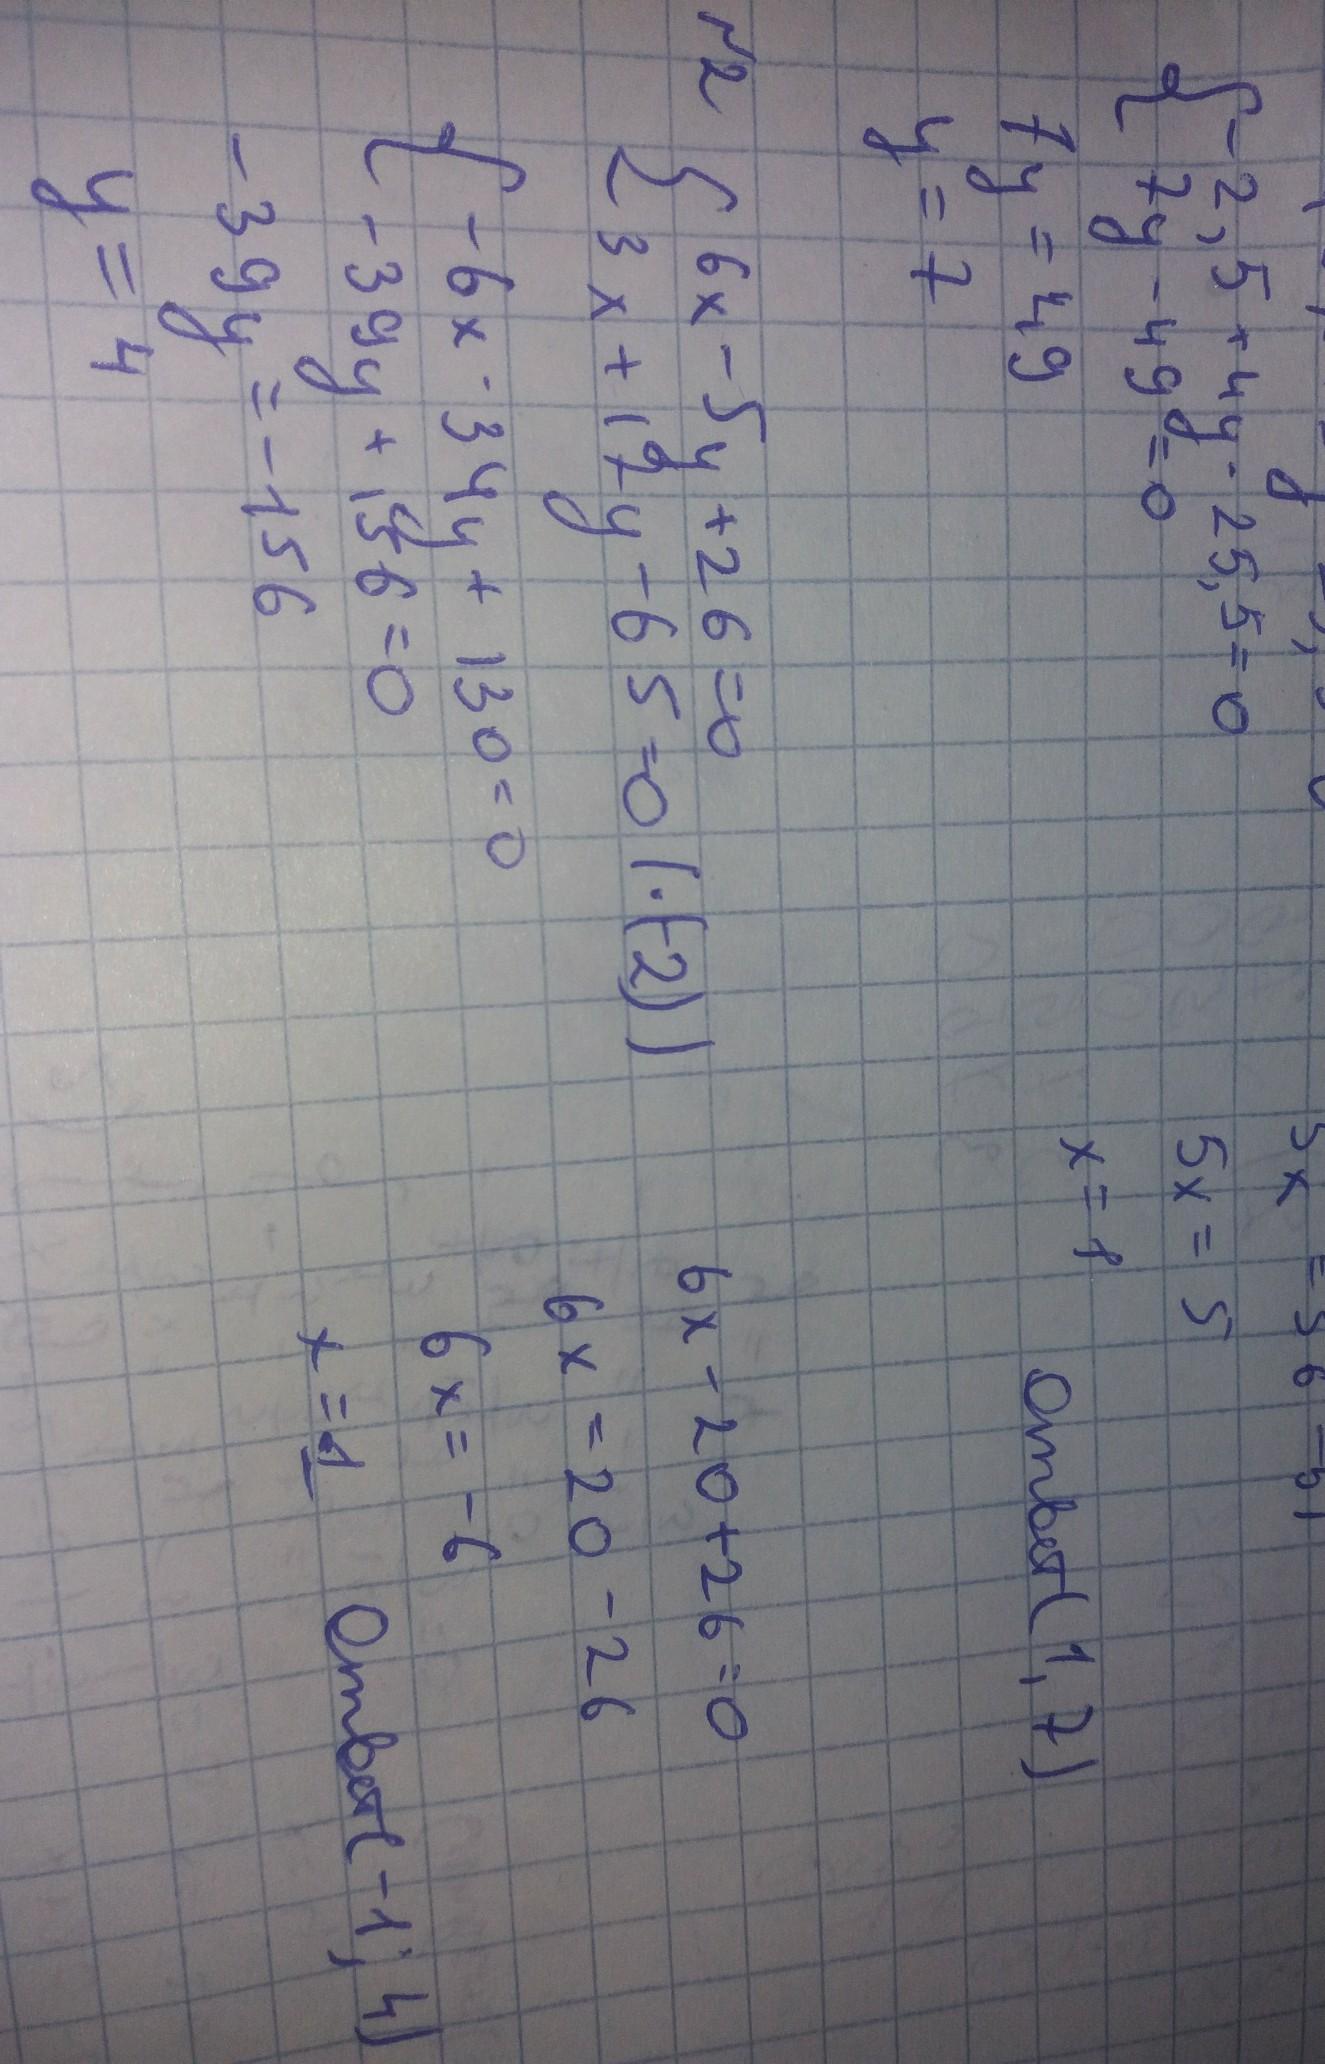 5x = 56 - 51
{ -2,5 + 4y - 25,5 = 0
7y - 49 = 0
5x = 5
7y = 49
x = 1
y = 7
Ответ (1, 7)
№2
{ 6x - 5y + 26 = 0
3x + 17y - 65 = 0 | · (-2) )
{ -6x - 34y + 130 = 0
-39y + 156 = 0
-39y = -156
y = 4
6x - 20 + 26 = 0
6x = 20 - 26
6x = -6
x = -1
Ответ (-1; 4)